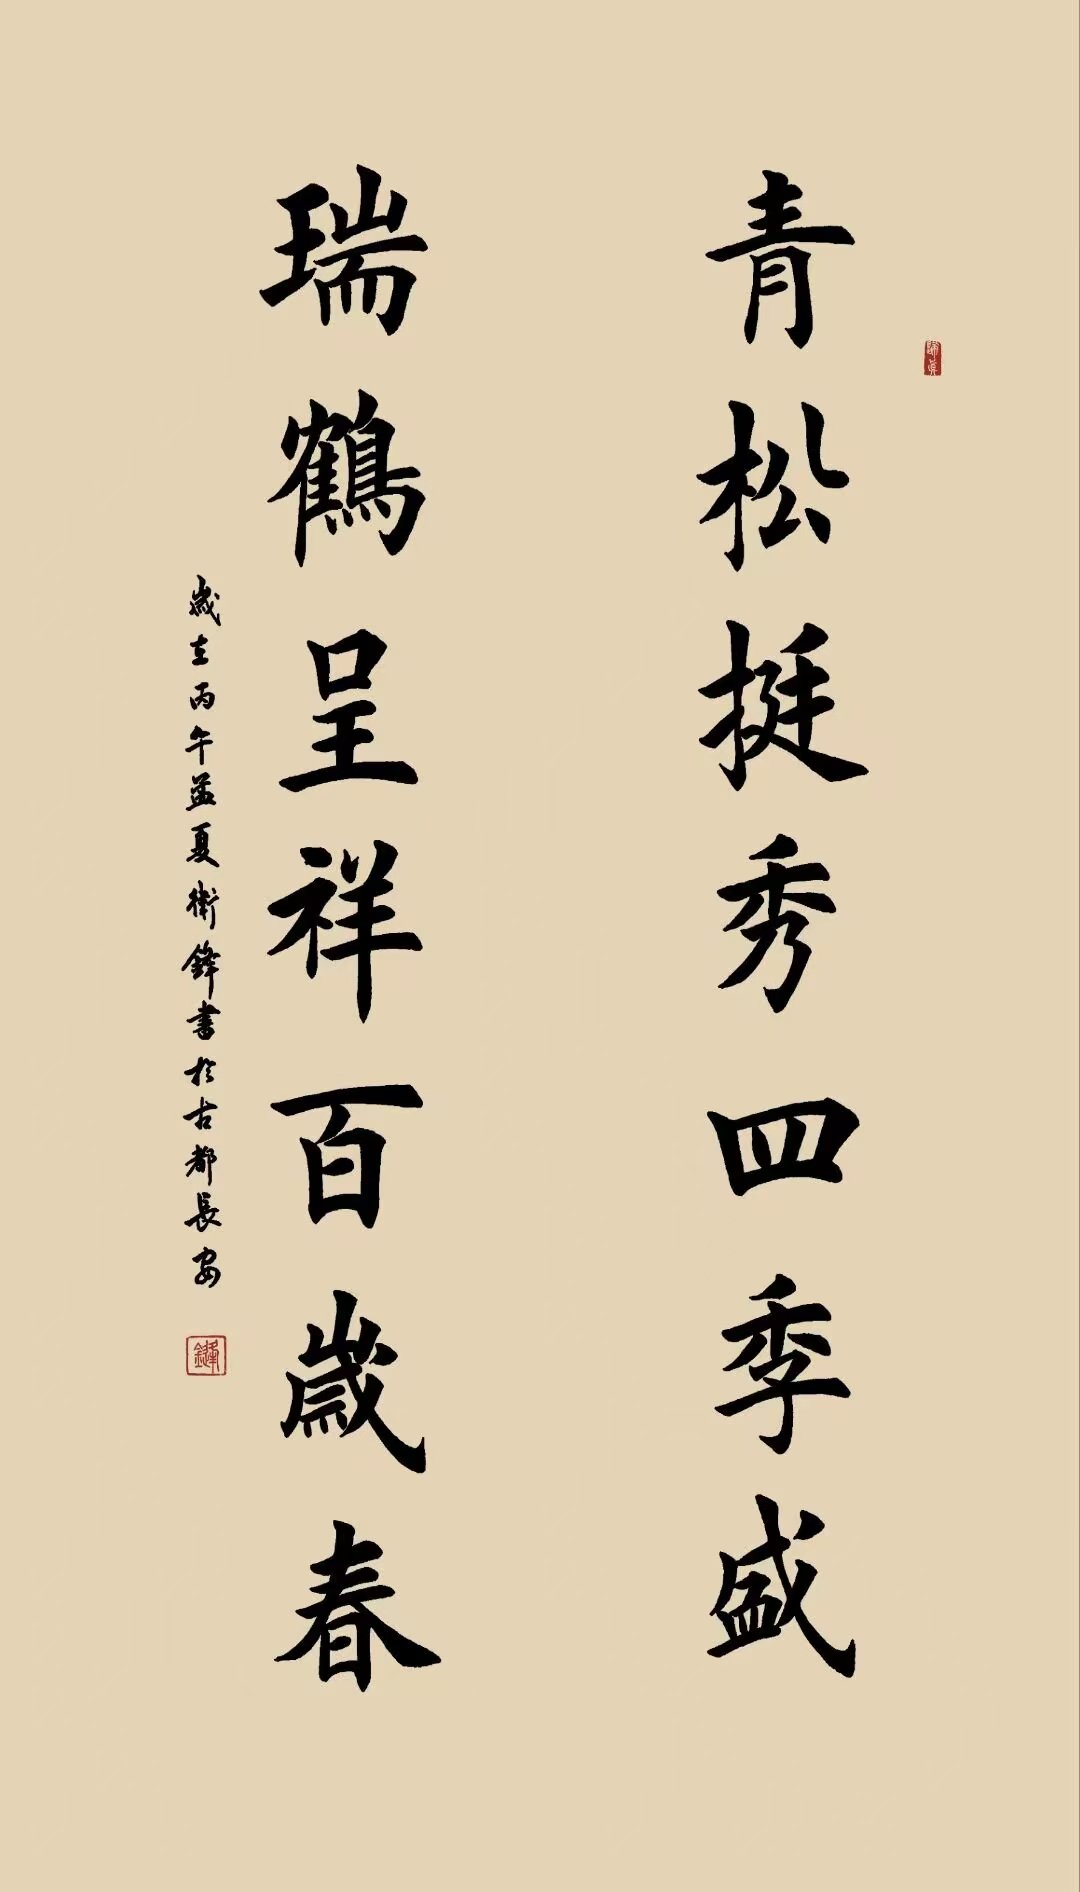 青松挺秀四季盛
瑞鶴呈祥百歲春
歲在丙午孟夏衛鋒書於古都長安
鋒